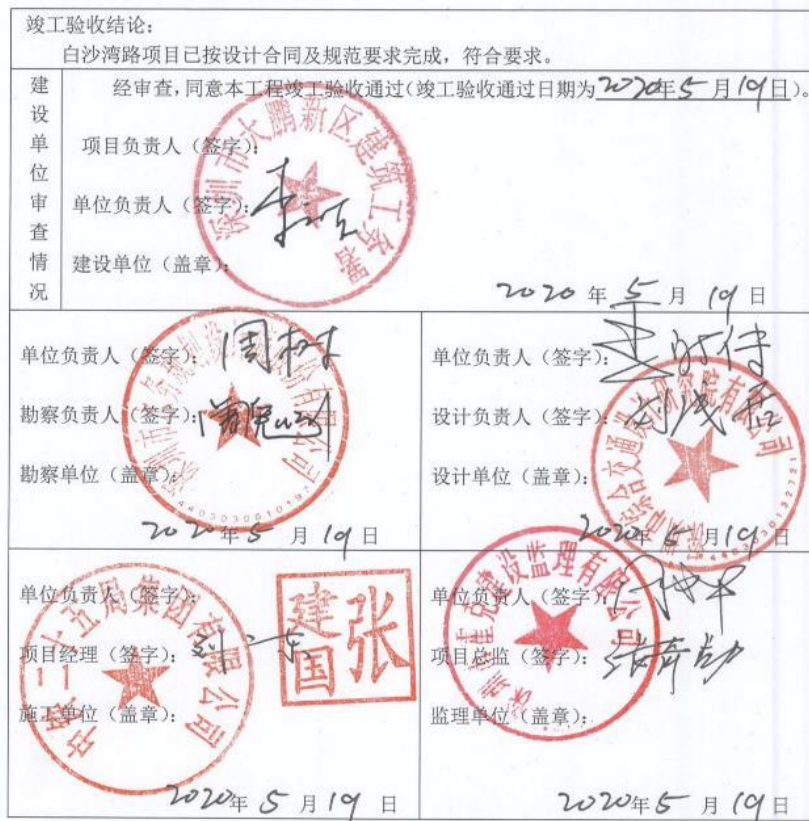 竣工验收结论：
白沙湾路项目已按设计合同及规范要求完成，符合要求。
建设单位审查情况
经审查，同意本工程竣工验收通过（竣工验收通过日期为2020年5月19日）。
项目负责人（签字）：
单位负责人（签字）：
建设单位（盖章）：
深圳市大鹏新区建筑工务署
2020年5月19日
单位负责人（签字）：周树
勘察负责人（签字）：
勘察单位（盖章）：
2020年5月19日
单位负责人（签字）：
设计负责人（签字）：
设计单位（盖章）：
2020年5月19日
单位负责人（签字）：
张建国
项目经理（签字）：
施工单位（盖章）：
中铁二十五局集团有限公司
2020年5月19日
单位负责人（签字）：
项目总监（签字）：
监理单位（盖章）：
2020年5月19日